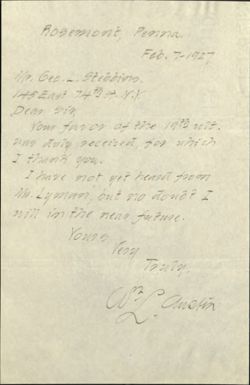 Rosemont, Penna
Feb. 7-1927
Mr. Geo. L. Stebbins
145 East 74th St. N.Y.
Dear Sir,
Your favor of the 19th ult.
was duly received, for which
I thank you.
I have not yet heard from
Mr. Lyman, but no doubt I
will in the near future.
Yours
Very
Truly,
Wm L. Austin